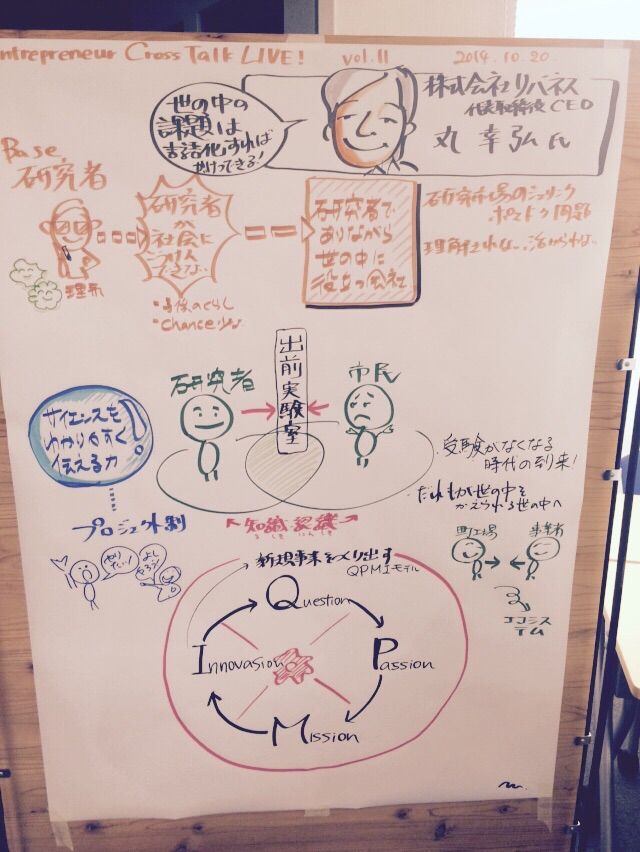 ntrepreneur Cross Talk LIVE! vol.11 2014.10.20.
株式会社リバネス
代表取締役 CEO
丸 幸弘 氏
世の中の
課題は
言語化すれば
かいけつできる!
Base
研究者
理系
研究者
が
社会に
できない
・Chance少ない
研究者で
ありながら
世の中に
役立つ会社
研究市場のシュリンク
ポスドク問題
理解されない、活かられない
出前実験室
研究者
市民
サイエンスを
わかりやすく
伝える力
プロジェクト制
やり
たい!
よし
やろう!
知識・認識
ちしき にんしき
・受験がなくなる
時代の到来!
・だれもが世の中を
かえられる世の中へ
町工場
事業者
エコシス
テム
新規事業をつくり出す
QPMIモデル
Question
Passion
Mission
Innovasion